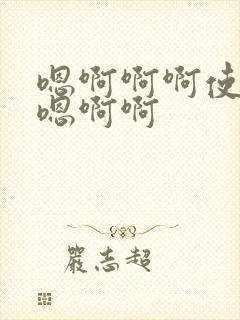 嗯啊啊啊使
嗯啊啊
嚴志超